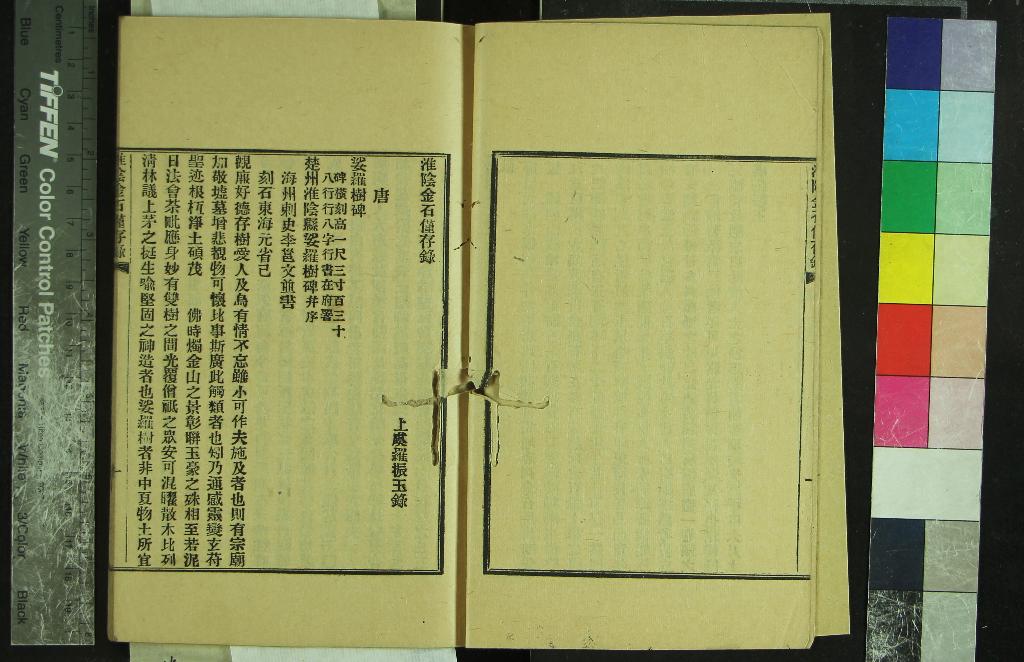 淮陰金石僅存錄
上虞羅振玉錄
唐
娑羅樹碑
碑橫刻高一尺三寸百三十
八行行八字行書在府署
楚州淮陰縣娑羅樹碑并序
海州刺史李邕文並書
刻石東海元省己
觀厥好德存樹愛人及烏有情不忘雖小可作夫施及者也則有宗廟
加敬墟墓增悲覩物可懷比事斯廣此觸類者也矧乃通感靈變玄符
聖迹根柢淨土碩茂 佛時燭金山之景彰聯玉豪之殊相至若泥
日法會荼毗應身妙有雙樹之間光覆僧祇之眾安可混曜散木比列
清林議上茅之挺生喻堅固之神造者也娑羅樹者非中夏物土所宜
淮陰金石僅存錄
TIFFEN Color Control Patches
Centimetres
Inches
Blue
Cyan
Green
Yellow
Red
Magenta
White
3/Color
Black